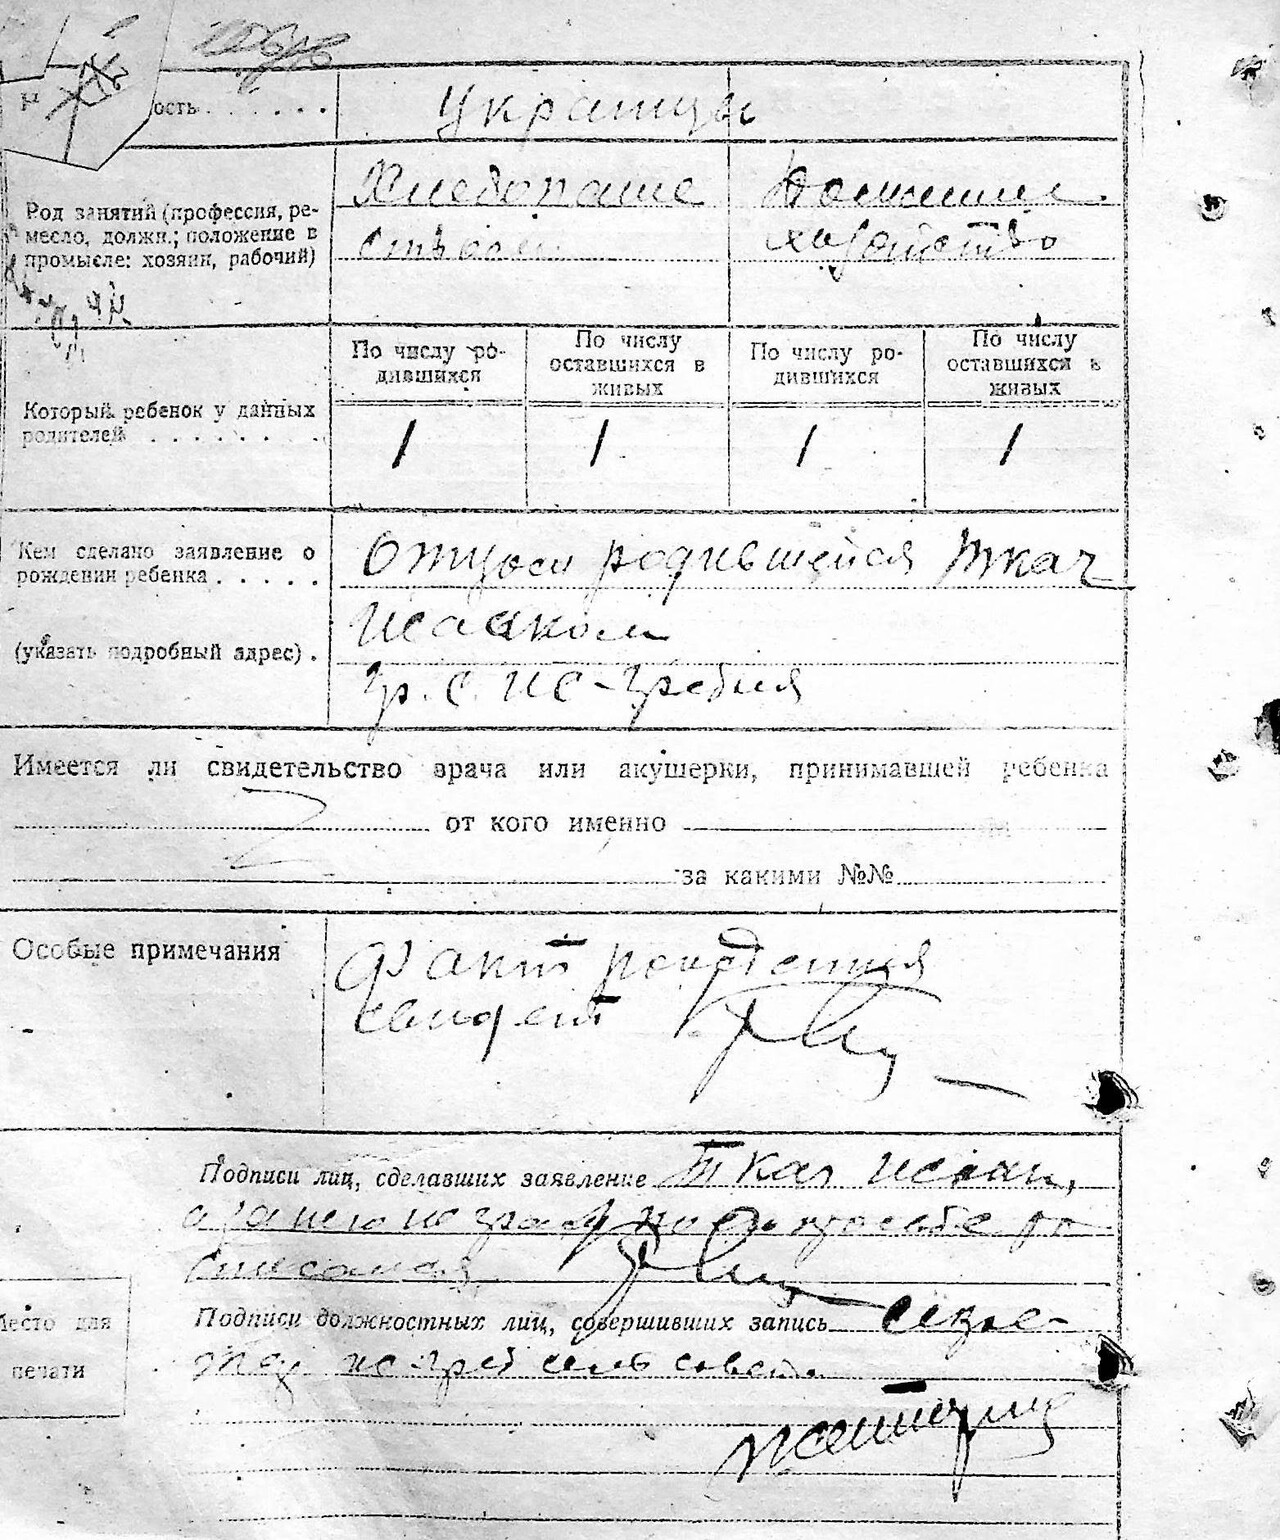 ость . . . . . .
Украинци
Род занятий (профессия, ре-
месло, должн.; положение в
промысле: хозяин, рабочий)
Хлебопаше
ством
Домашнее
хозяйство
Который ребенок у данных
родителей . . . . . . . .
По числу ро-
дившихся
По числу
оставшихся в
живых
По числу ро-
дившихся
По числу
оставшихся в
живых
1 1 1 1
Кем сделано заявление о
рождении ребенка . . . . .
(указать подробный адрес) .
Отцом родившейся Ткач
Исааком
гр. с.
Имеется ли свидетельство врача или акушерки, принимавшей ребенка
от кого именно
за какими №№
Особые примечания
Факт рождения
свидет
Подписи лиц, сделавших заявление Ткач Исаак,
а за него неграмотного по просьбе
Подписи должностных лиц, совершивших запись
сель совета
Место для
печати